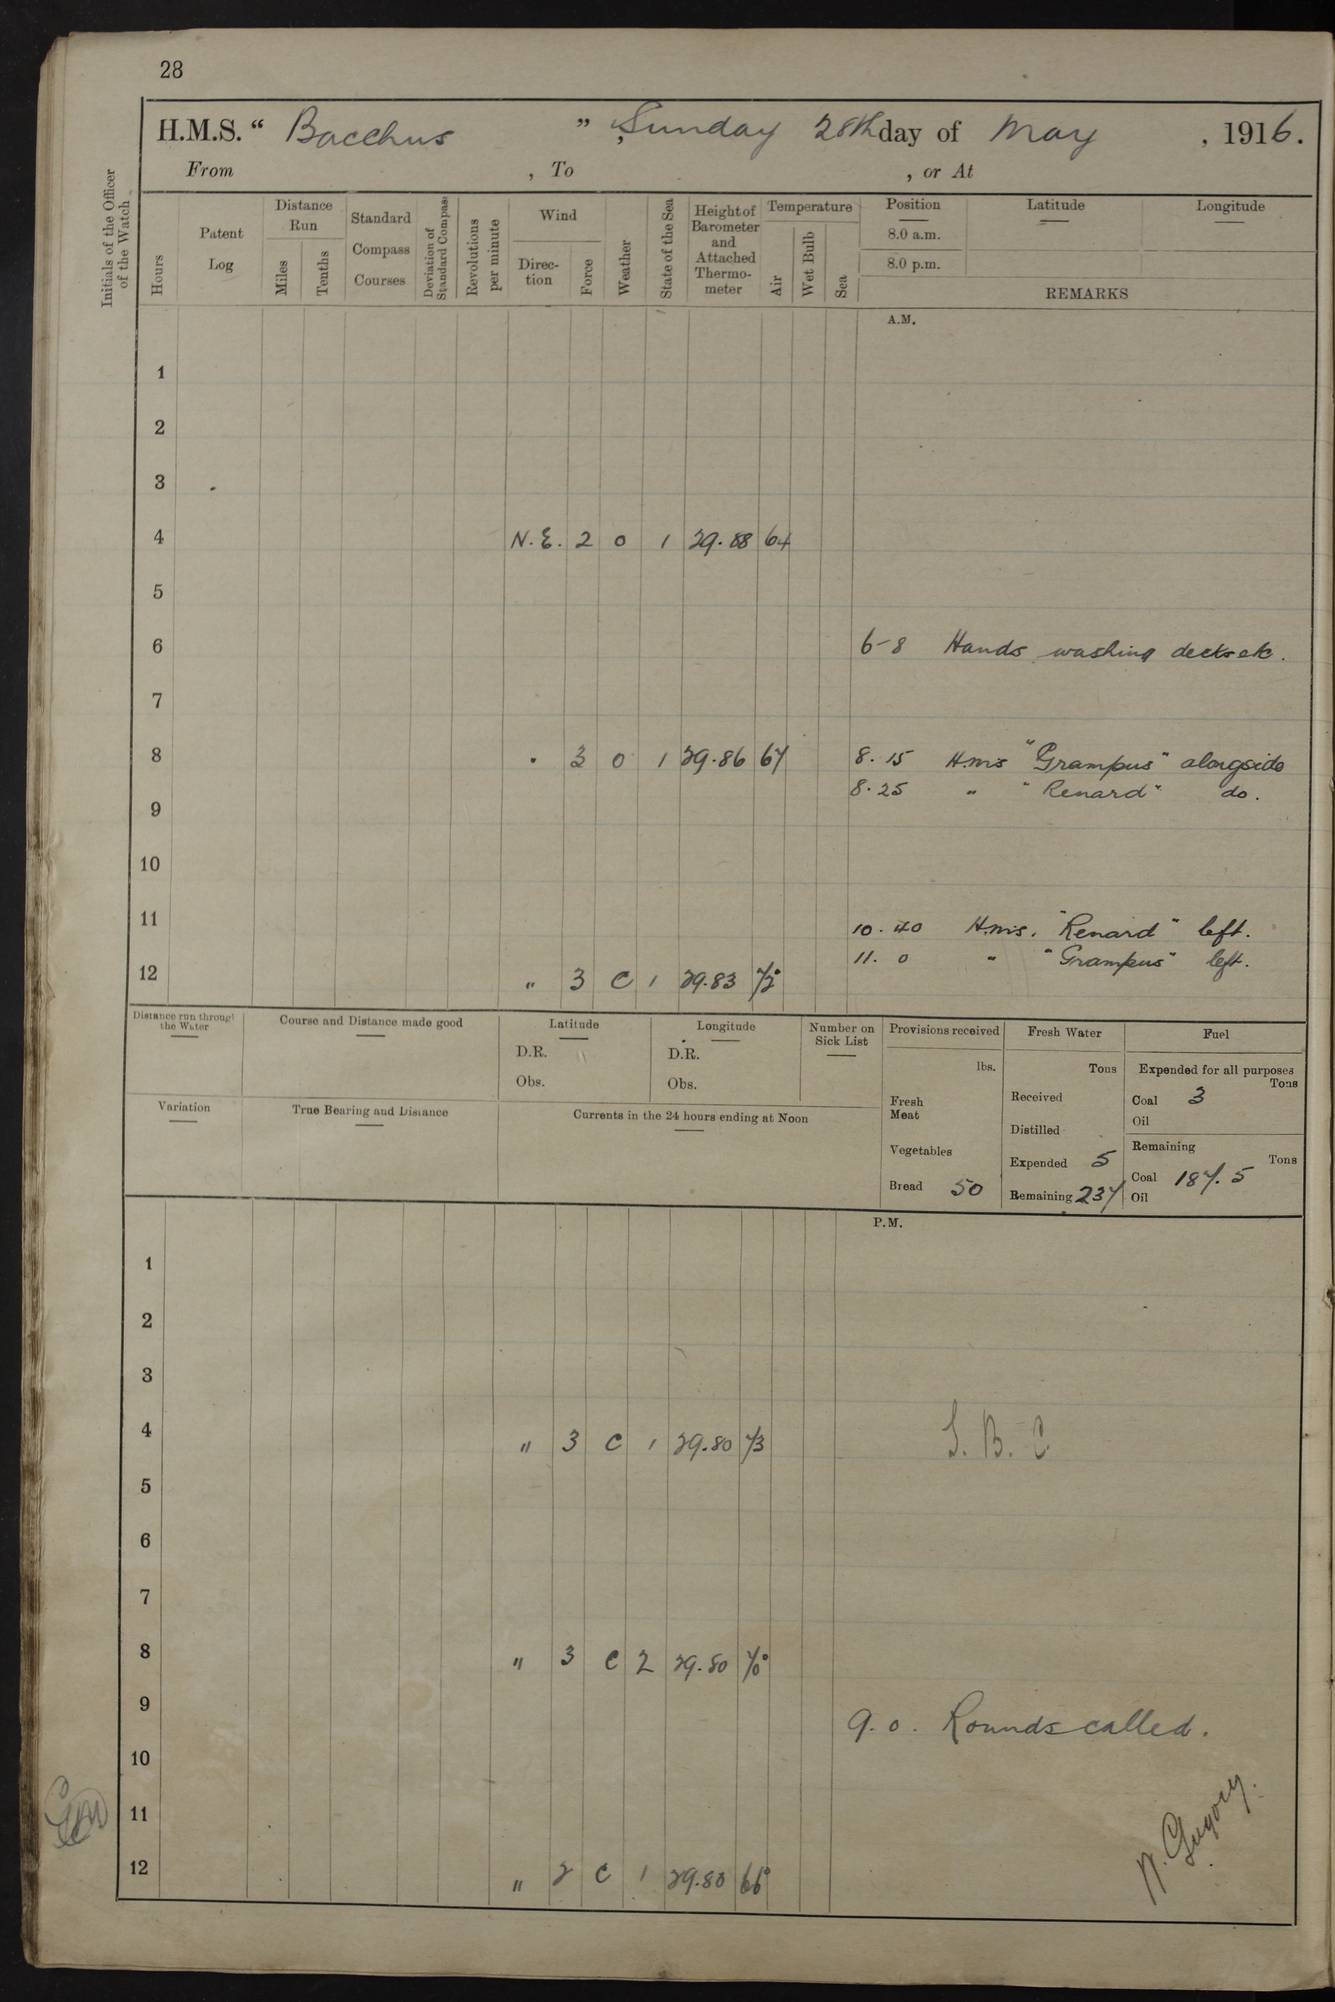 28
H.M.S. “ Bacchus ” , Sunday 28th day of May , 1916.
From , To , or At
Initials of the Officer of the Watch
Hours
Patent Log
Distance Run
Miles
Tenths
Standard Compass Courses
Deviation of Standard Compass
Revolutions per minute
Wind
Direc- tion
Force
Weather
State of the Sea
Height of Barometer and Attached Thermo- meter
Temperature
Air
Wet Bulb
Sea
Position Latitude Longitude
8.0 a.m.
8.0 p.m.
REMARKS
A.M.
1
2
3
4 N.E. 2 0 1 29.88 64
5
6 6-8 Hands washing decks etc.
7
8 " 3 0 1 29.86 67 8.15 H.M.S "Grampus" alongside
8.25 " "Renard" do.
9
10
11 10.40 H.M.S. "Renard" left.
11.0 " "Grampus" left.
12 " 3 C 1 29.83 72°
Distance run through the Water
Course and Distance made good
Latitude
D.R.
Obs.
Longitude
D.R.
Obs.
Number on Sick List
Provisions received
lbs.
Fresh Meat
Vegetables
Bread 50
Fresh Water
Tons
Received
Distilled
Expended 5
Remaining 237
Fuel
Expended for all purposes
Tons
Coal 3
Oil
Remaining
Tons
Coal 187.5
Oil
Variation
True Bearing and Distance
Currents in the 24 hours ending at Noon
P.M.
1
2
3
4 " 3 C 1 29.80 73 S. B. C
5
6
7
8 " 3 C 2 29.80 70°
9 9.0. Rounds called.
10
11
12 " 2 C 1 29.80 66°
N. Gregory.